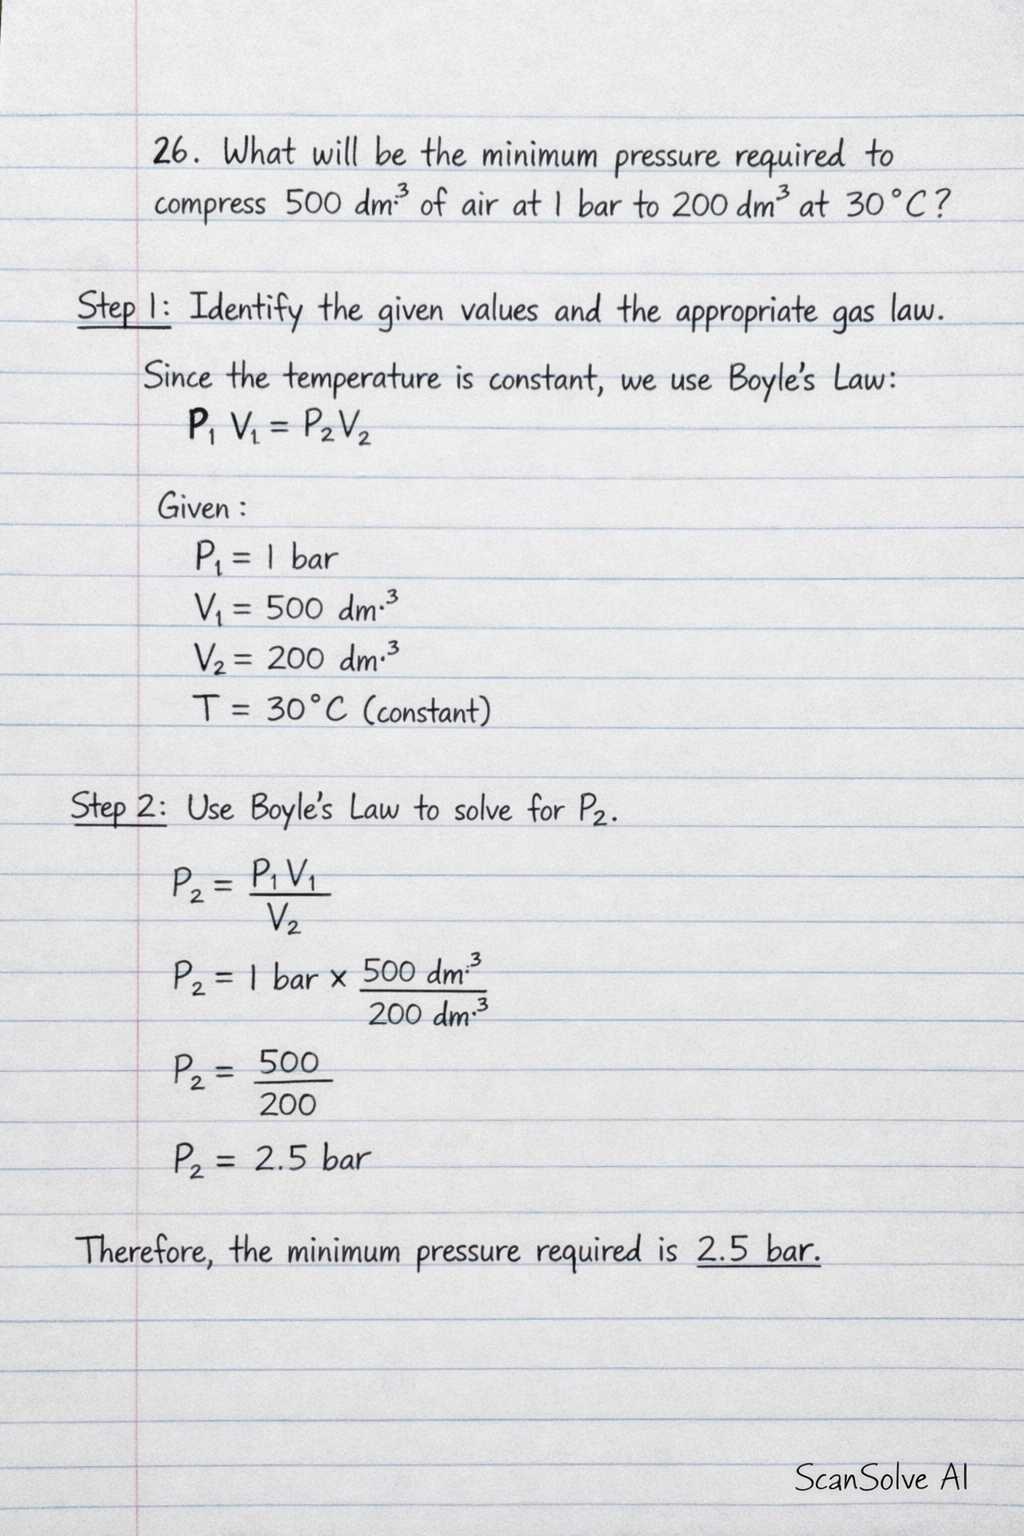 26. What will be the minimum pressure required to
compress 500 dm.³ of air at 1 bar to 200 dm³ at 30°C?
Step 1: Identify the given values and the appropriate gas law.
Since the temperature is constant, we use Boyle's Law:
P₁ V₁ = P₂V₂
Given :
P₁ = 1 bar
V₁ = 500 dm.³
V₂ = 200 dm.³
T = 30°C (constant)
Step 2: Use Boyle's Law to solve for P₂.
P₂ = P₁ V₁ / V₂
P₂ = 1 bar × 500 dm.³ / 200 dm.³
P₂ = 500 / 200
P₂ = 2.5 bar
Therefore, the minimum pressure required is 2.5 bar.
ScanSolve AI